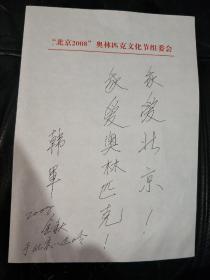 “北京2008”奥林匹克文化节组委会
我爱北京！
我爱奥林匹克！
韩军
2008
金秋
于北京